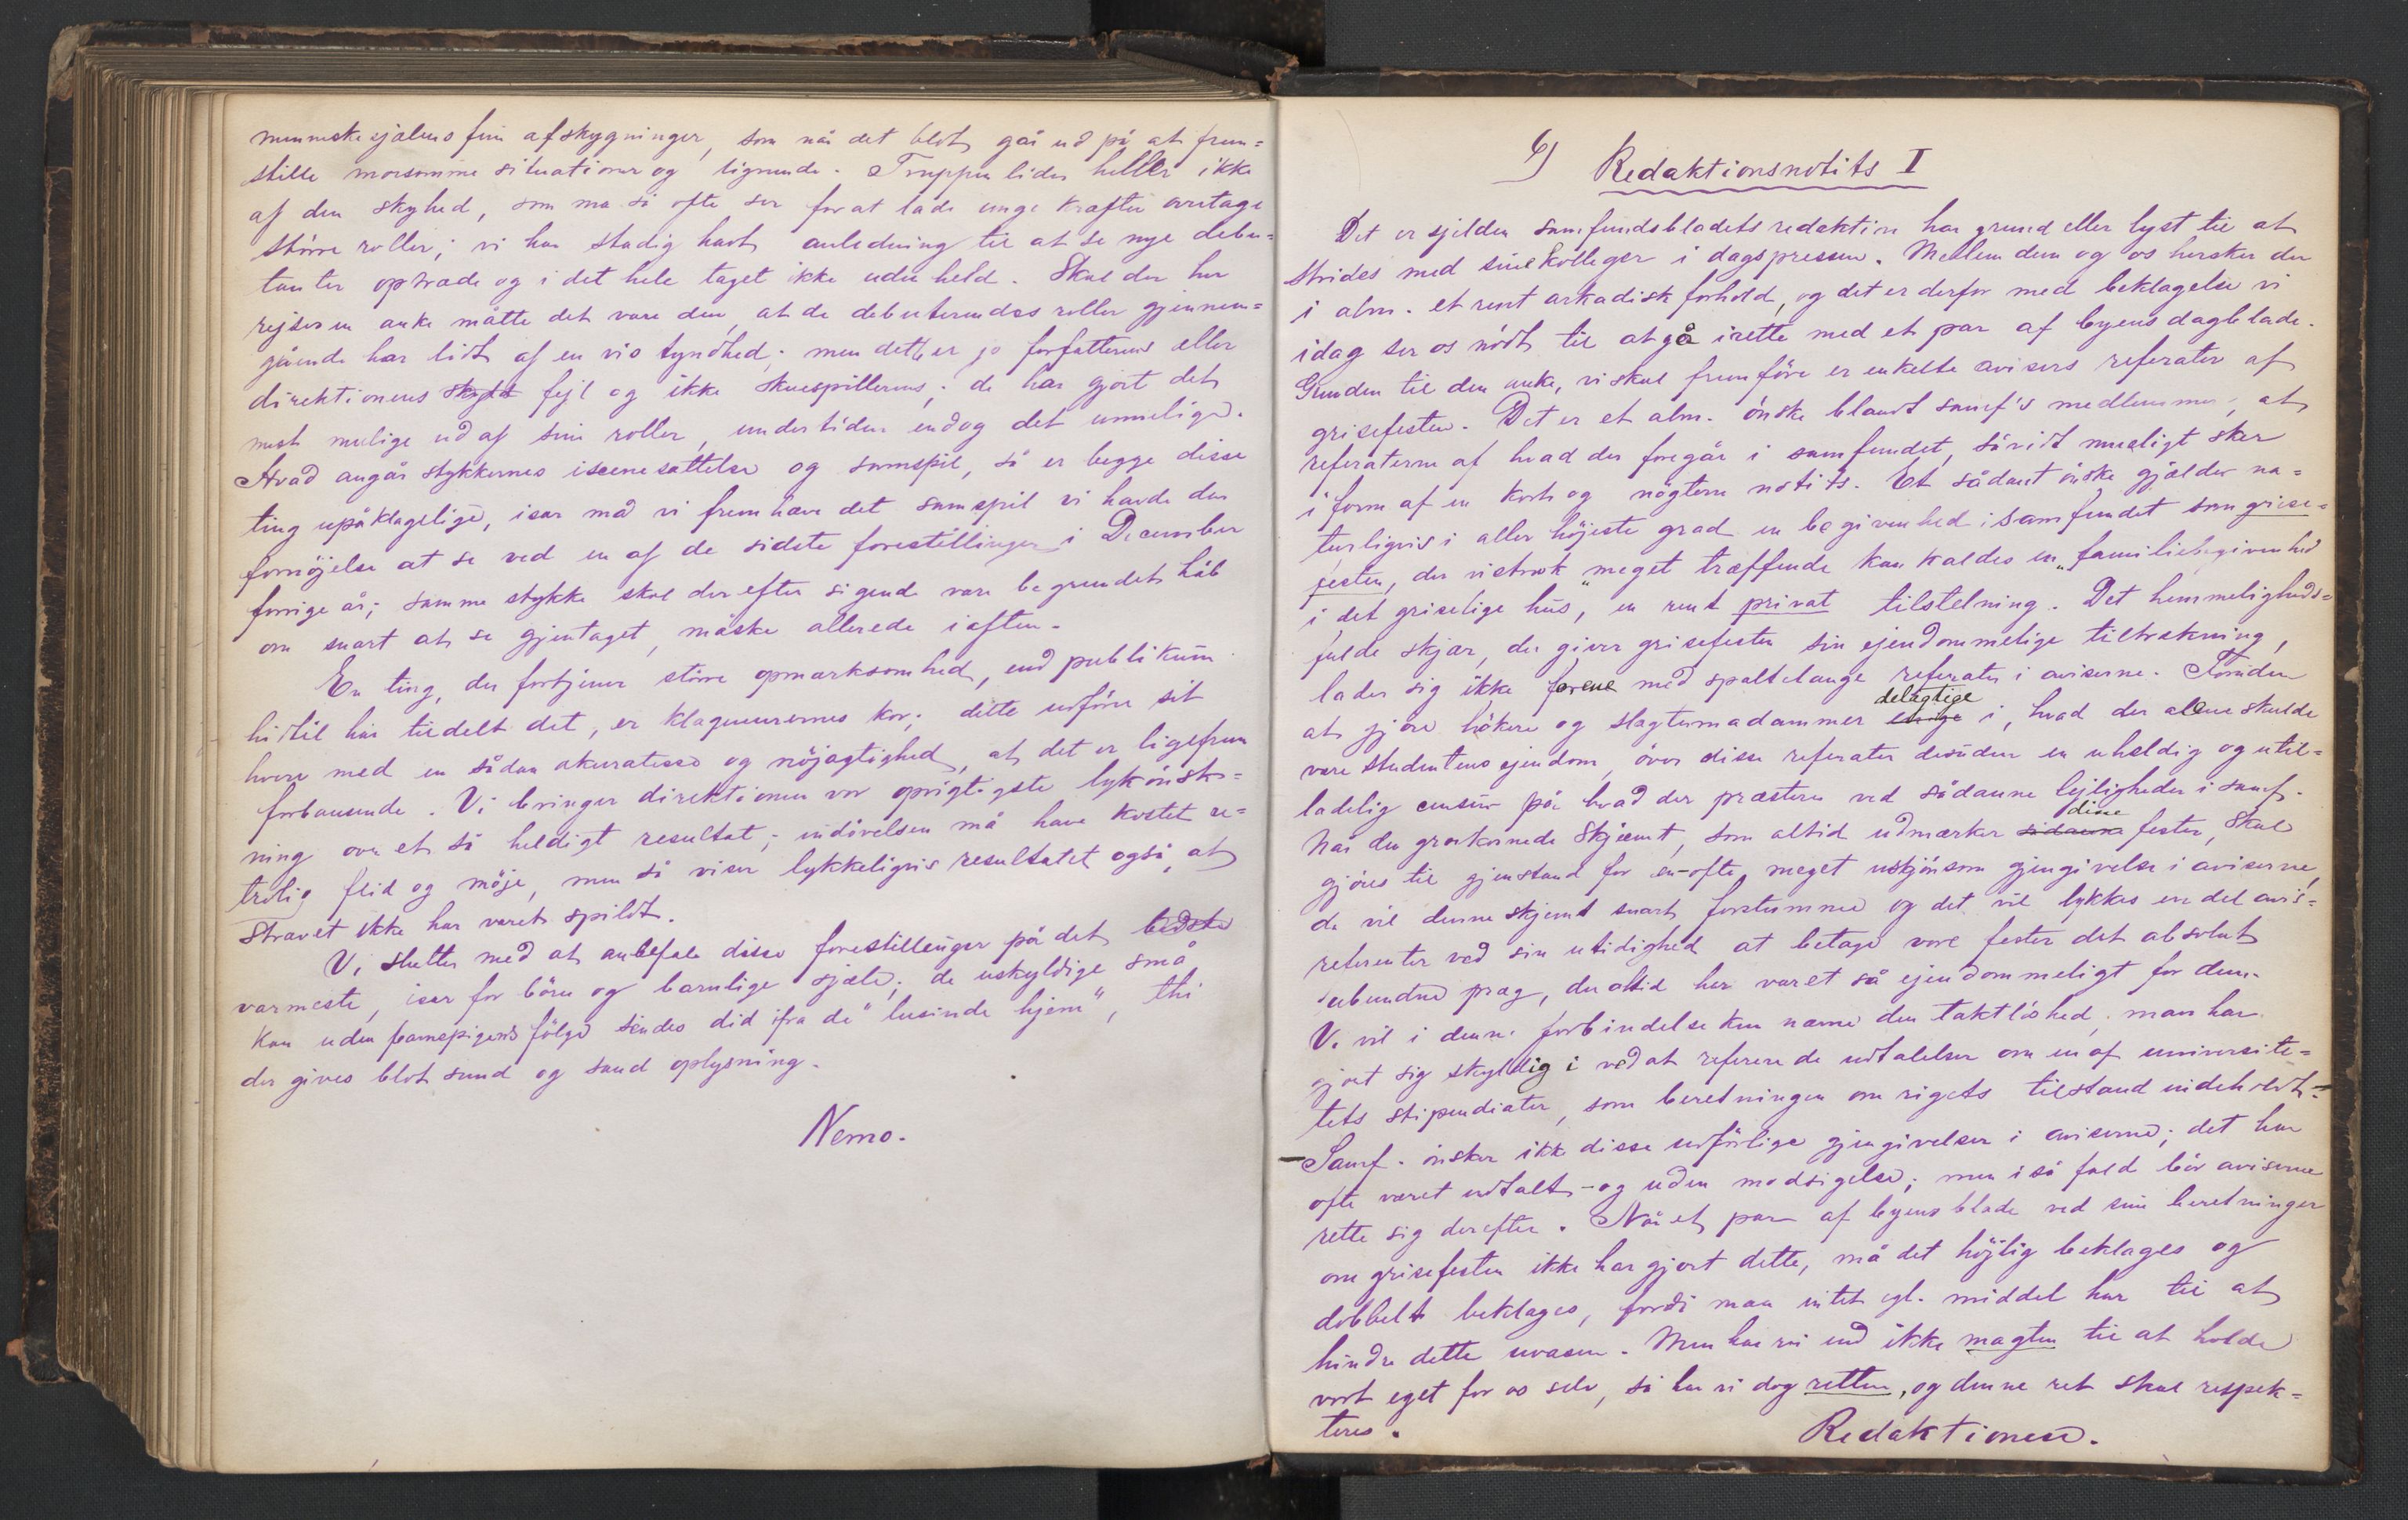 menneskesjælens fine afskygninger, som når det blot går ud på at frem=
stille morsomme situationer og lignende. Truppen lider heller ikke
af den skyhed, som man så ofte ser for at lade unge kræfter overtage
större roller; vi har stadig havt anledning til at se nye debu=
tanter optræde og i det hele taget ikke uden held. Skal der her
rejses en anke måtte det være den, at de debuterendes roller gjennem=
gående har lidt af en vis tyndhed; men dette er jo forfatterens eller
direktionens skyld fejl og ikke skuespillerens; de har gjort det
mest mulige ud af sine roller, undertiden endog det umulige.
Hvad angår stykkernes iscenesættelse og samspil, så er begge disse
ting upåklagelige, især må vi fremhæve det samspil vi havde den
fornöjelse at se ved en af de sidste forestillinger i December
forrige år; samme stykke skal der efter sigende være begrundet håb
om snart at se gjentaget, måske allerede iaften.
En ting, der fortjener större opmærksomhed, end publikum
hidtil har tildelt det, er klaqueurernes kor; dette udförer sit
hverv med en sådan akuratesse og nöjagtighed, at det er ligefrem
forbausende. Vi bringer direktionen vor oprigtigste lykönsk=
ning over et så heldigt resultat; indövelsen må have kostet u=
trolig flid og möje, men så viser lykkeligvis resultatet også, at
strævet ikke har været spildt.
Vi slutter med at anbefale disse forestillinger på det bedste
varmeste, især for börn og barnlige sjæle; de uskyldige små
kan uden barnepigens fölge sendes did ifra de "tusinde hjem", thi
der gives blot sund og sand oplysning.
Nemo.
6) Redaktionsnotits I
Det er sjelden samfundsbladets redaktion har grund eller lyst til at
strides med sine kolleger i dagspressen. Mellem dem og os hersker der
i alm. et rent arkadisk forhold, og det er derfor med beklagelse vi
idag ser os nödt til at gå irette med et par af byens dagblade.
Grunden til den anke, vi skal fremföre er enkelte avisers referater af
grisefesten. Det er et alm. önske blandt samf's medlemmer, at
referaterne af hvad der foregår i samfundet, såvidt mueligt sker
i form af en kort og nögtern notits. Et sådant önske gjælder na=
turligvis i aller höjeste grad en begivenhed i samfundet som grise=
festen, der vistnok meget træffende kan kaldes en "familiebegivenhed
i det griselige hus", en rent privat tilstelning. Det hemmeligheds=
fulde skjær, der giver grisefesten sin ejendommelige tiltrækning,
lader sig ikke forene med spaltelange referater i aviserne. Foruden
at gjöre hökere og slagtermadammer delagtige i, hvad der alene skulde
være studentens ejendom, över disse referater desuden en uheldig og util=
ladelig censur på hvad der præsteres ved sådanne lejligheder i samf.
Når den grovkornede skjæmt, som altid udmærker sådanne disse fester, skal
gjöres til gjenstand for en – ofte meget uskjönsom gjengivelse i aviserne,
da vil denne skjemt snart forstumme og det vil lykkes en del avis=
referenter ved sin utidighed at betage vore fester det absolut
ubundne præg, der altid har været så ejendommeligt for dem.
Vi vil i denne forbindelse kun nævne den taktlöshed, man har
gjort sig skyldig i ved at referere de udtalelser om en af universite=
tets stipendiater, som beretningen om rigets tilstand indeholdt. –
– Samf. önsker ikke disse udförlige gjengivelser i aviserne; det har
ofte været udtalt – og uden modsigelse; men i så fald bör aviserne
rette sig derefter. Når et par af byens blade ved sine beretninger
om grisefesten ikke har gjort dette, må det höjlig beklages og
dobbelt beklages, fordi man intet egl. middel har til at
hindre dette uvæsen. Men har vi end ikke magten til at holde
vort eget for os selv, så har vi dog retten, og denne ret skal respek=
teres.
Redaktionen.